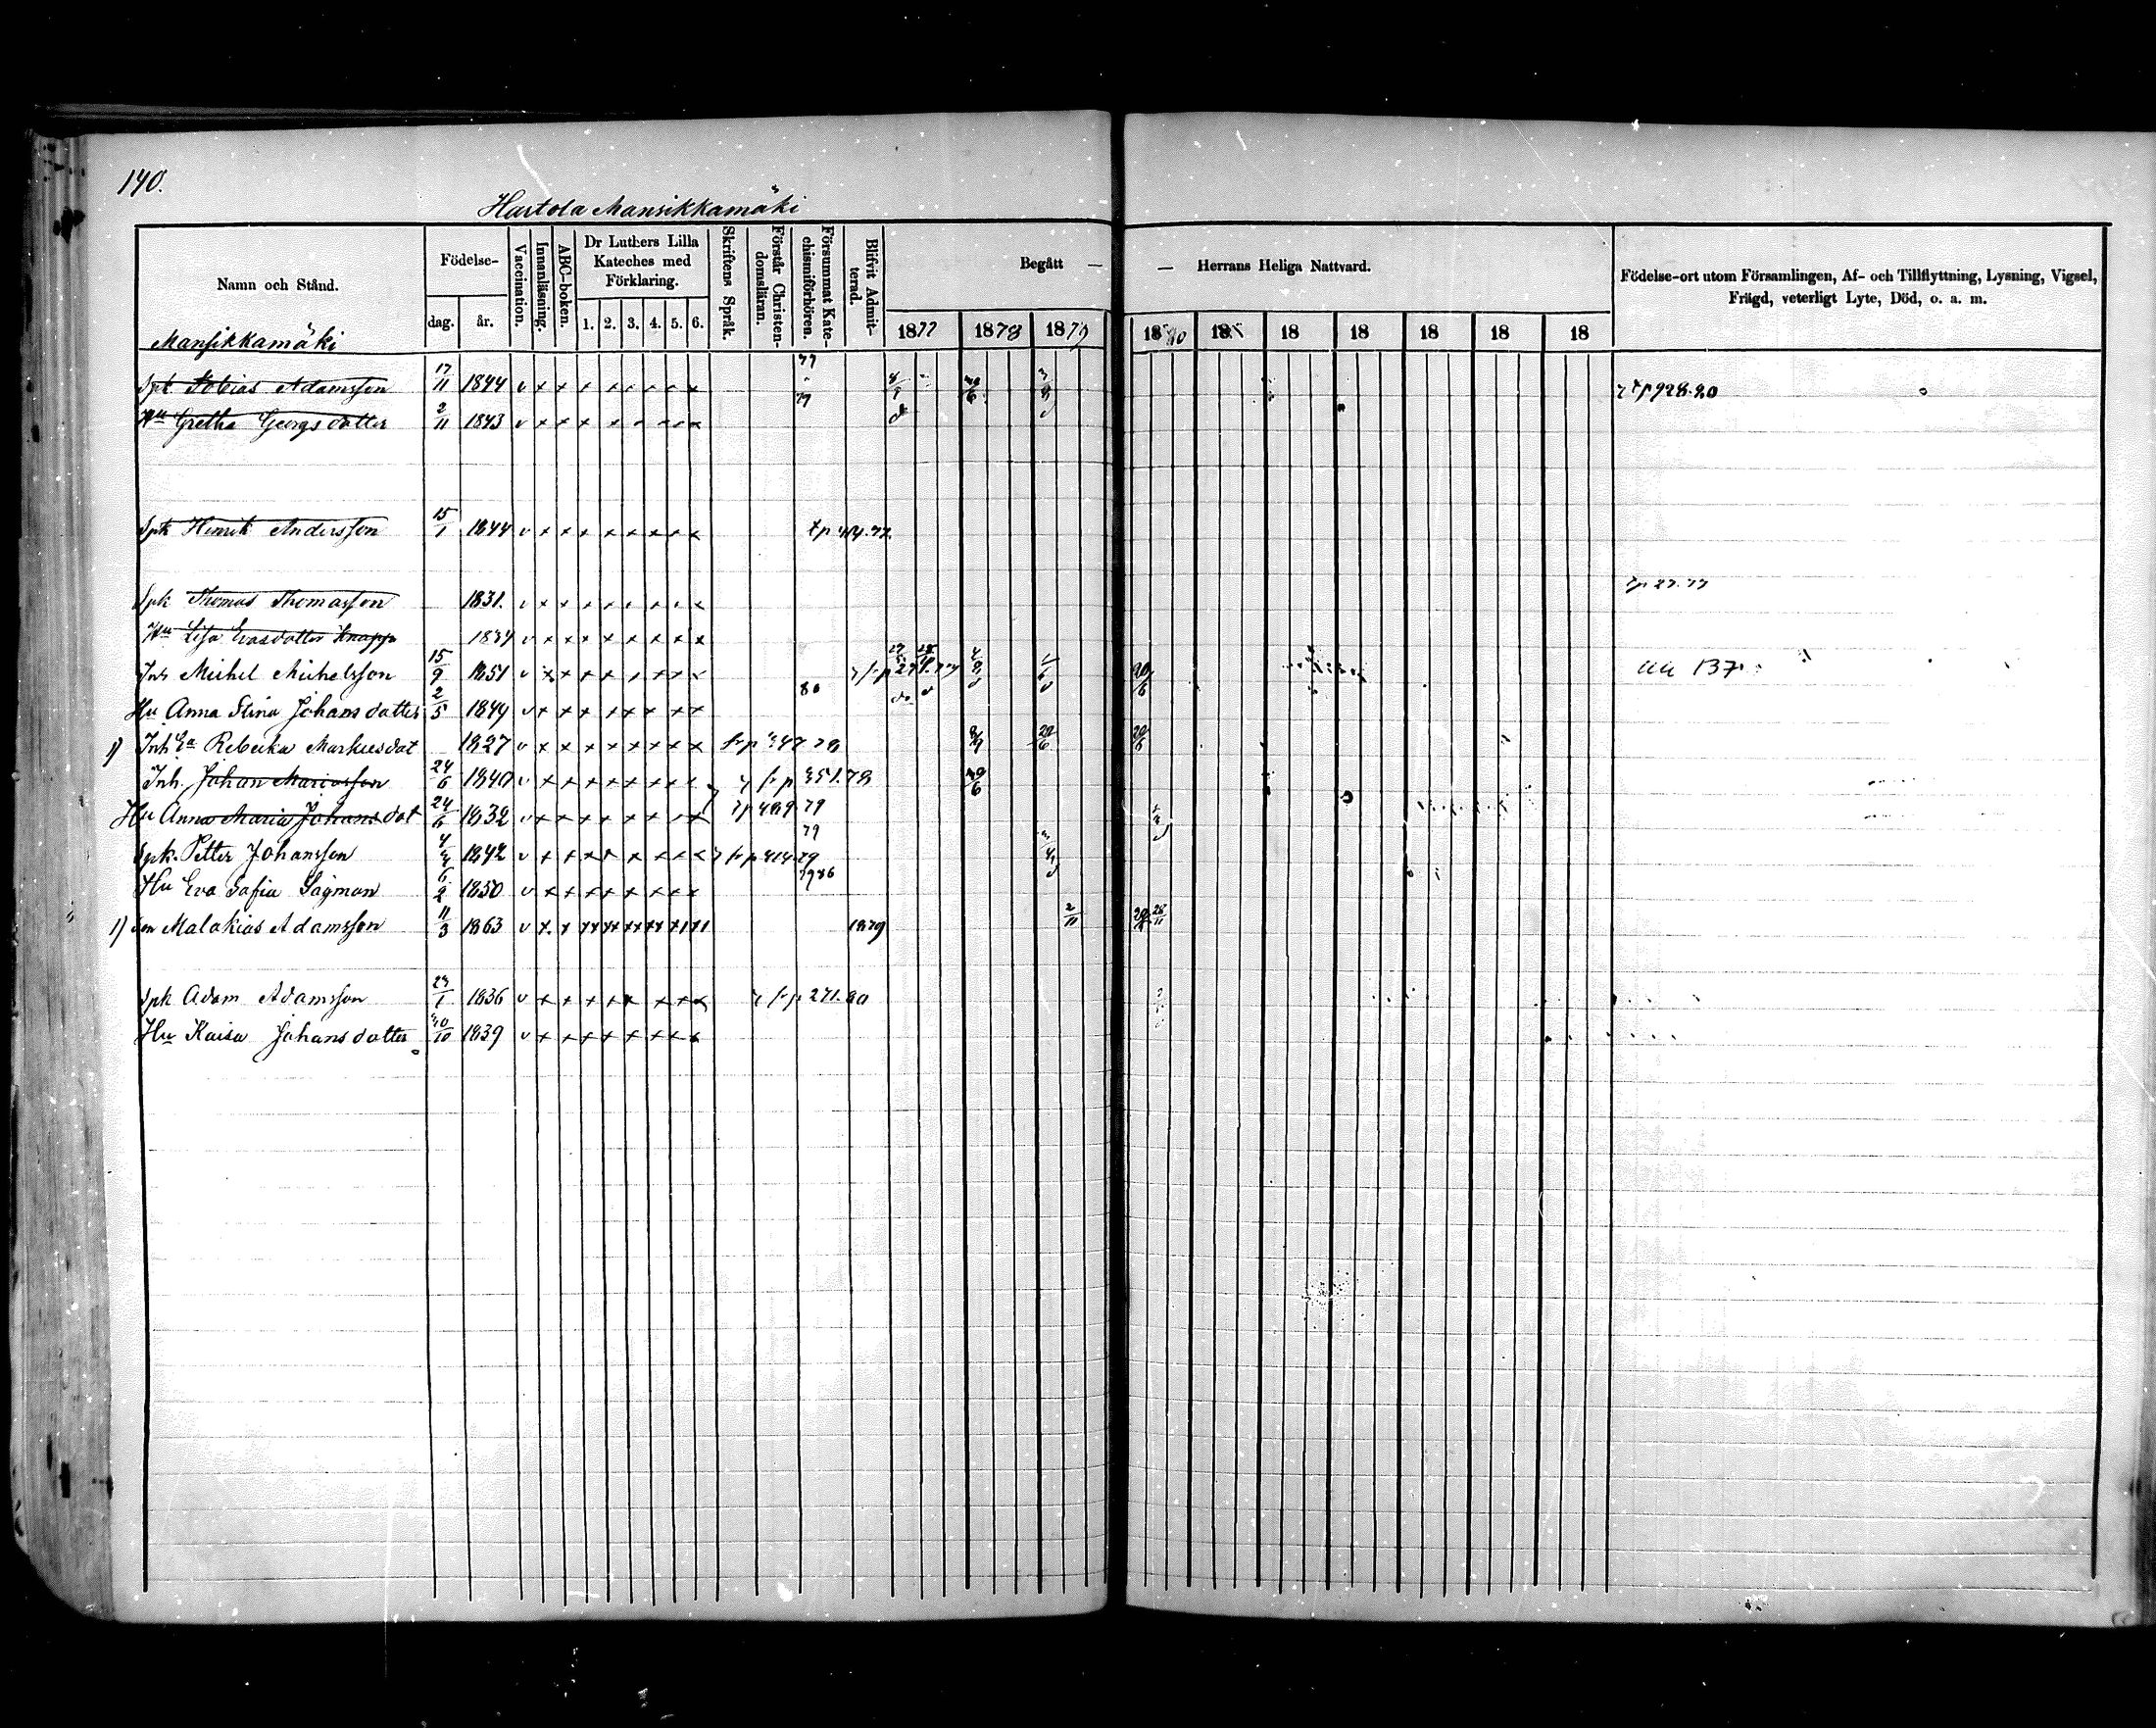 140.
Hartola Mansikkamäki
Namn och Stånd.
Födelse-
dag.
år.
Vaccination.
Innanläsning.
ABC-boken.
Dr Luthers Lilla
Kateches med
Förklaring.
1. 2. 3. 4. 5. 6.
Skriftens Språk.
Förstår Christen-
domsläran.
Försummat Kate-
chismiförhören.
Blifvit Admit-
terad.
Begått —
— Herrans Heliga Nattvard.
1877 1878 1879 1880 18 18 18 18 18 18
Födelse-ort utom Församlingen, Af- och Tillflyttning, Lysning, Vigsel,
Frägd, veterligt Lyte, Död, o. a. m.
Mansikkamäki
77
Spk Tobias Adamsson 17/11 1844 v x x x x x x x x
79
Hu Gretha Georgsdotter 2/11 1843 v x x x x x x x x
Spk Henrik Andersson 15/1 1844 v x x x x x x x x
Spk Thomas Thomasson 1831. v x x x x x x x x
Hu Lisa Evasdotter Knapp 1834 v x x x x x x x x
Inh Michel Michelsson 15/9 1851 v x x x x x x x x 20/6 137
80
Hu Anna Stina Johansdotter 2/5 1849 v x x x x x x x x
1) Inh Ea Rebecka Markusdot 1827 v x x x x x x x x fr p 347 78
Inh. Johan Mariasson 24/6 1840 v x x x x x x x x fr p 351.78
Hu Anna Maria Johansdot 24/6 1832 v x x x x x x x x 489 79
79
Spk. Petter Johansson 1842 v x x x x x x x x fr p 414.79
Hu Eva Sofia Sagman 1850 v x x x x x x x x
1) Son Malakias Adamsson 11/3 1863 v x x xx xx xx xx x1 x1 1879 2/11
Spk Adam Adamsson 1836 v x x x x x x x x fr p 271.80
Hu Kaisa Johansdotter 30/10 1839 v x x x x x x x x